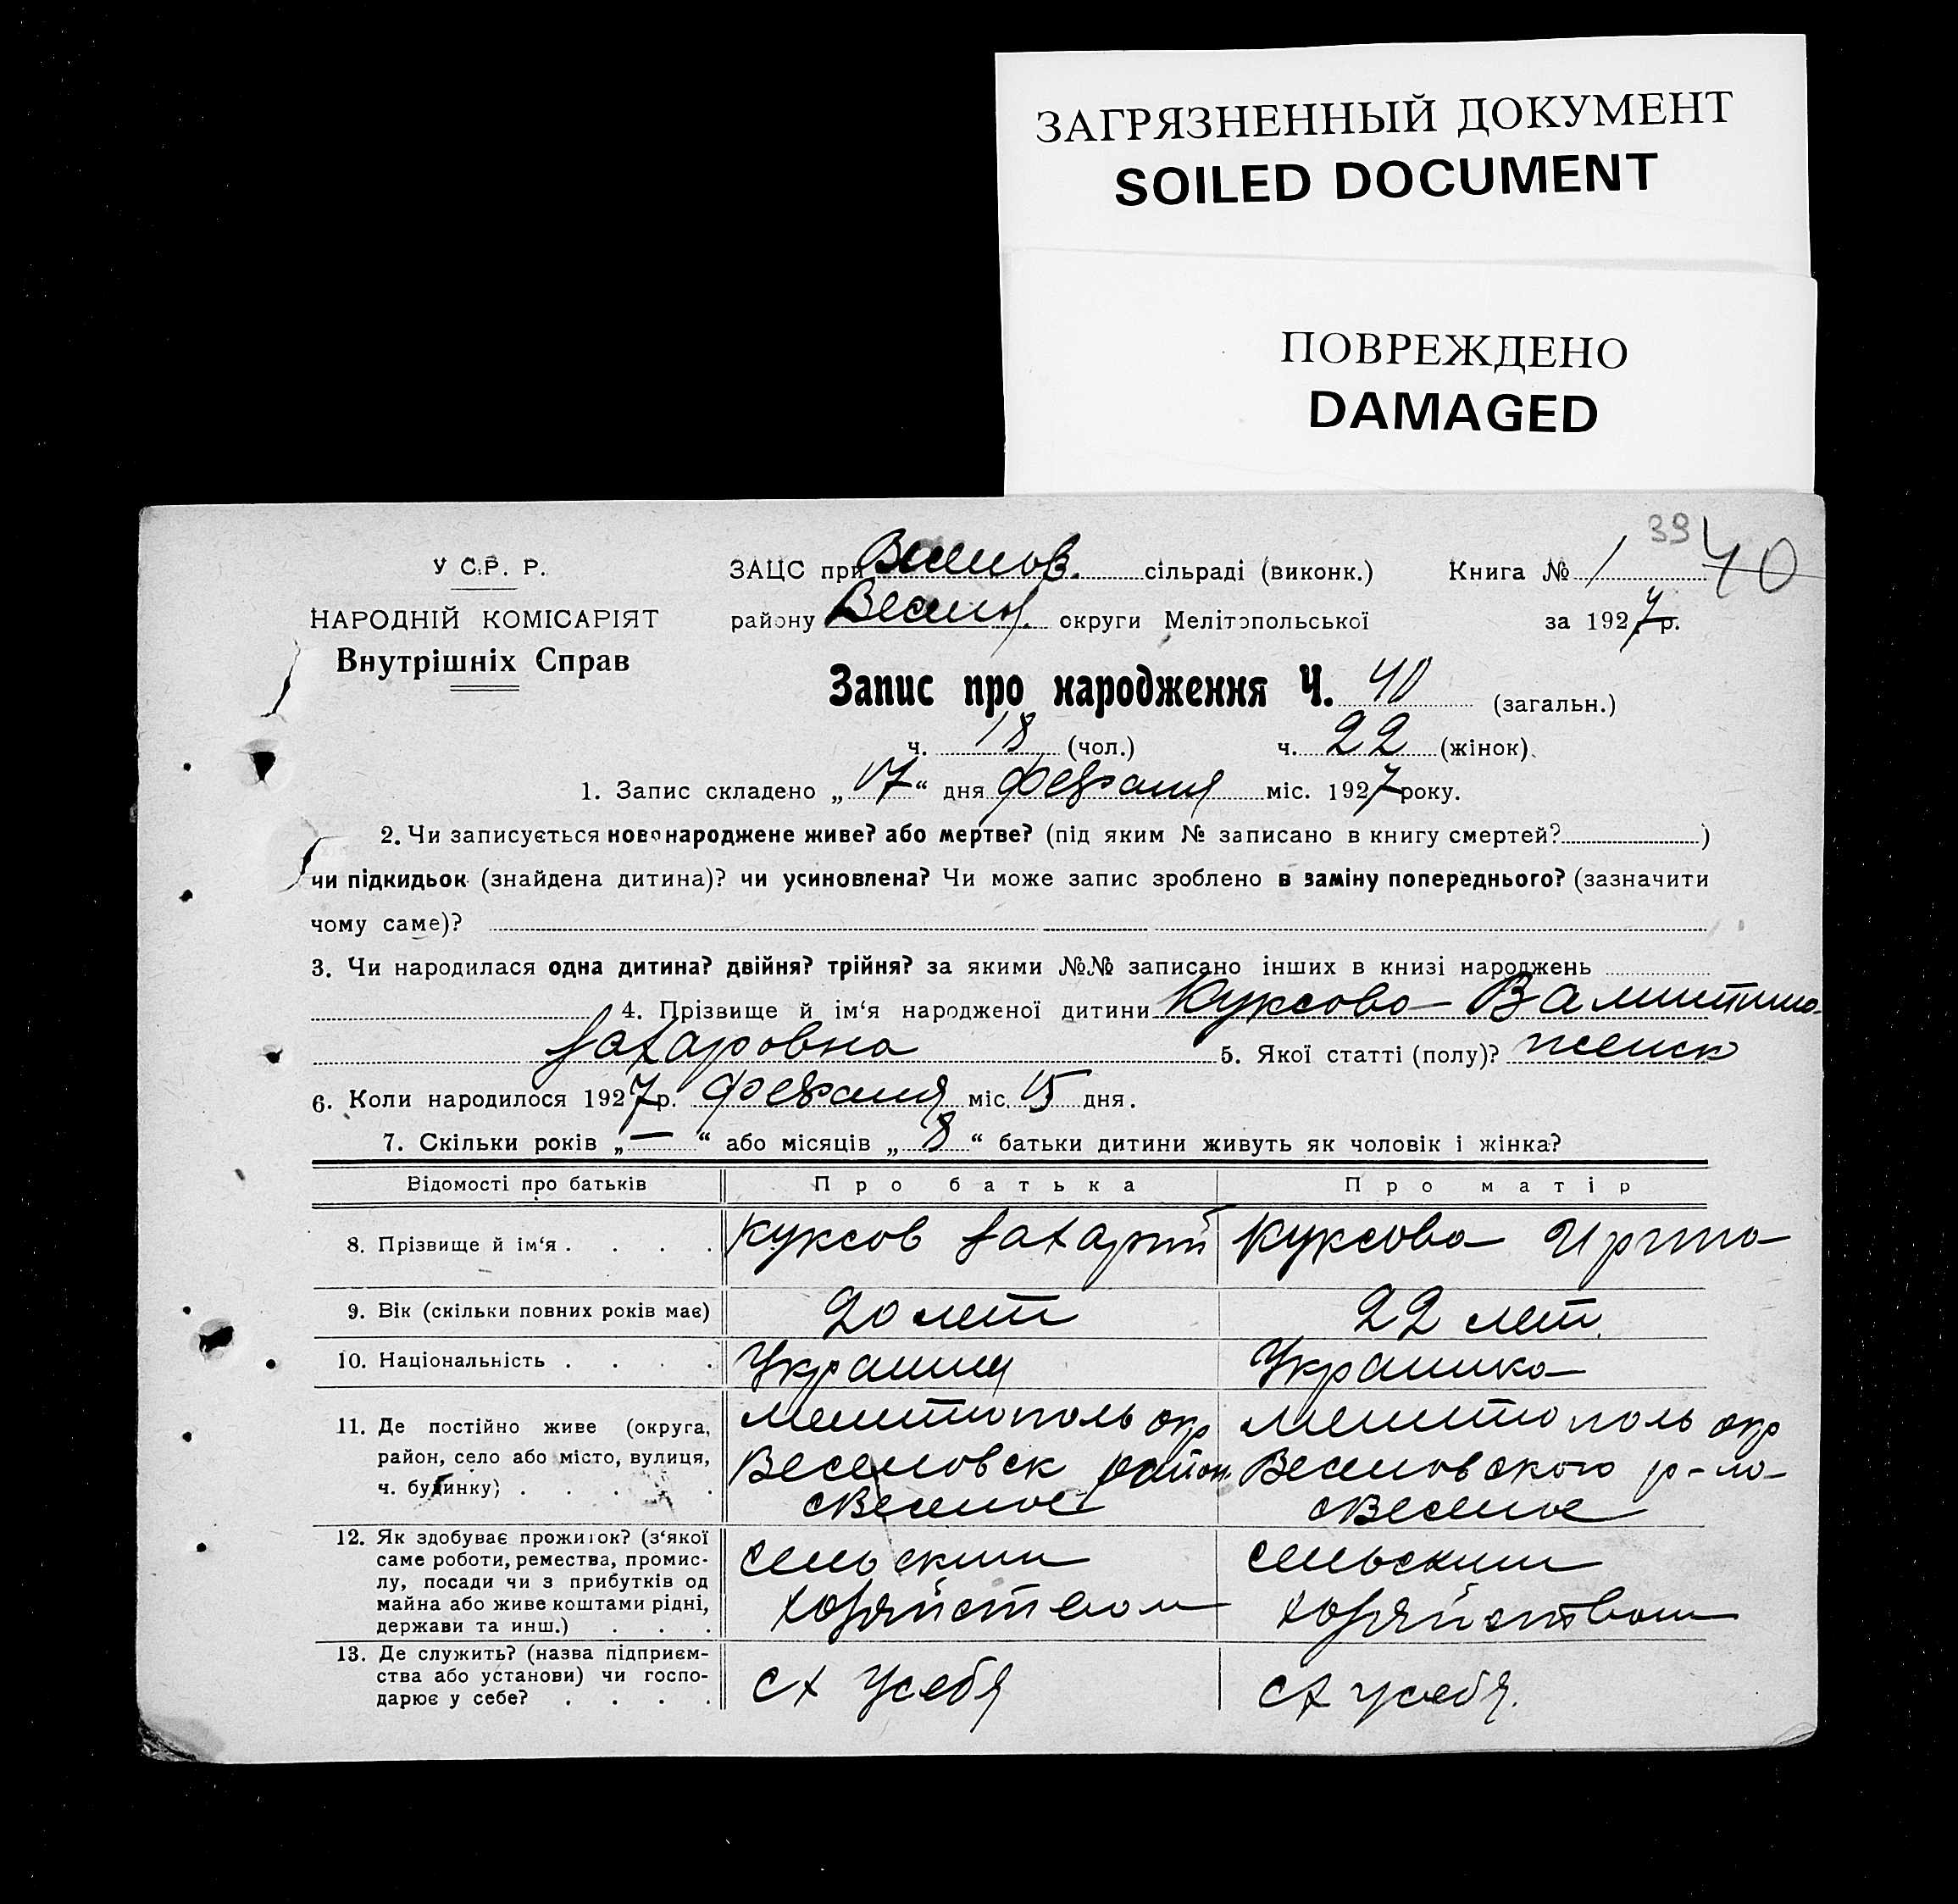 ЗАГРЯЗНЕННЫЙ ДОКУМЕНТ
SOILED DOCUMENT
ПОВРЕЖДЕНО
DAMAGED
39 40
У С.Р. Р.
ЗАЦС при Веселов. сільраді (виконк.) Книга № 1
НАРОДНІЙ КОМІСАРІЯТ
району Весел. округи Мелітопольської за 1927 р.
Внутрішніх Справ
Запис про народження Ч. 40 (загальн.)
ч. 18 (чол.) ч. 22 (жінок).
1. Запис складено „17“ дня февраля міс. 1927 року.
2. Чи записується новонароджене живе? або мертве? (під яким № записано в книгу смертей? )
чи підкидьок (знайдена дитина)? чи усиновлена? Чи може запис зроблено в заміну попереднього? (зазначити
чому саме)?
3. Чи народилася одна дитина? двійня? трійня? за якими №№ записано інших в книзі народжень
4. Прізвище й ім‘я народженої дитини Куксова Валинтина
Захаровна 5. Якої статті (полу)? женск
6. Коли народилося 1927 р. февраля міс. 15 дня.
7. Скільки років „—“ або місяців „8“ батьки дитини живуть як чоловік і жінка?
Відомості про батьків Про батька Про матір
8. Прізвище й ім‘я . . . . Куксов Захарий Куксова Ирина
9. Вік (скільки повних років має) 20 лет 22 лет.
10. Національність . . . . Украинец Украинка
11. Де постійно живе (округа, Мелитополь окр Мелитополь окр
район, село або місто, вулиця, Веселовск район Веселовского р-на
ч. будинку) . . . . с Веселое с Веселое
12. Як здобуває прожиток? (з‘якої
саме роботи, ремества, промис- сельским сельским
лу, посади чи з прибутків од
майна або живе коштами рідні, хозяйством хозяйством
держави та инш.) . . .
13. Де служить? (назва підприєм-
ства або установи) чи госпо- сх у себя сх у себя.
дарює у себе? . . . .